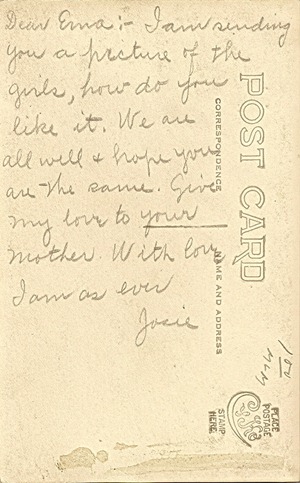 Dear Erna:- I am sending
you a picture of the
girls, how do you
like it. We are
all well & hope you
are the same. Give
my love to your
mother. With love
I am as ever
Josie
POST CARD
CORRESPONDENCE
NAME AND ADDRESS
PLACE
POSTAGE
STAMP
HERE